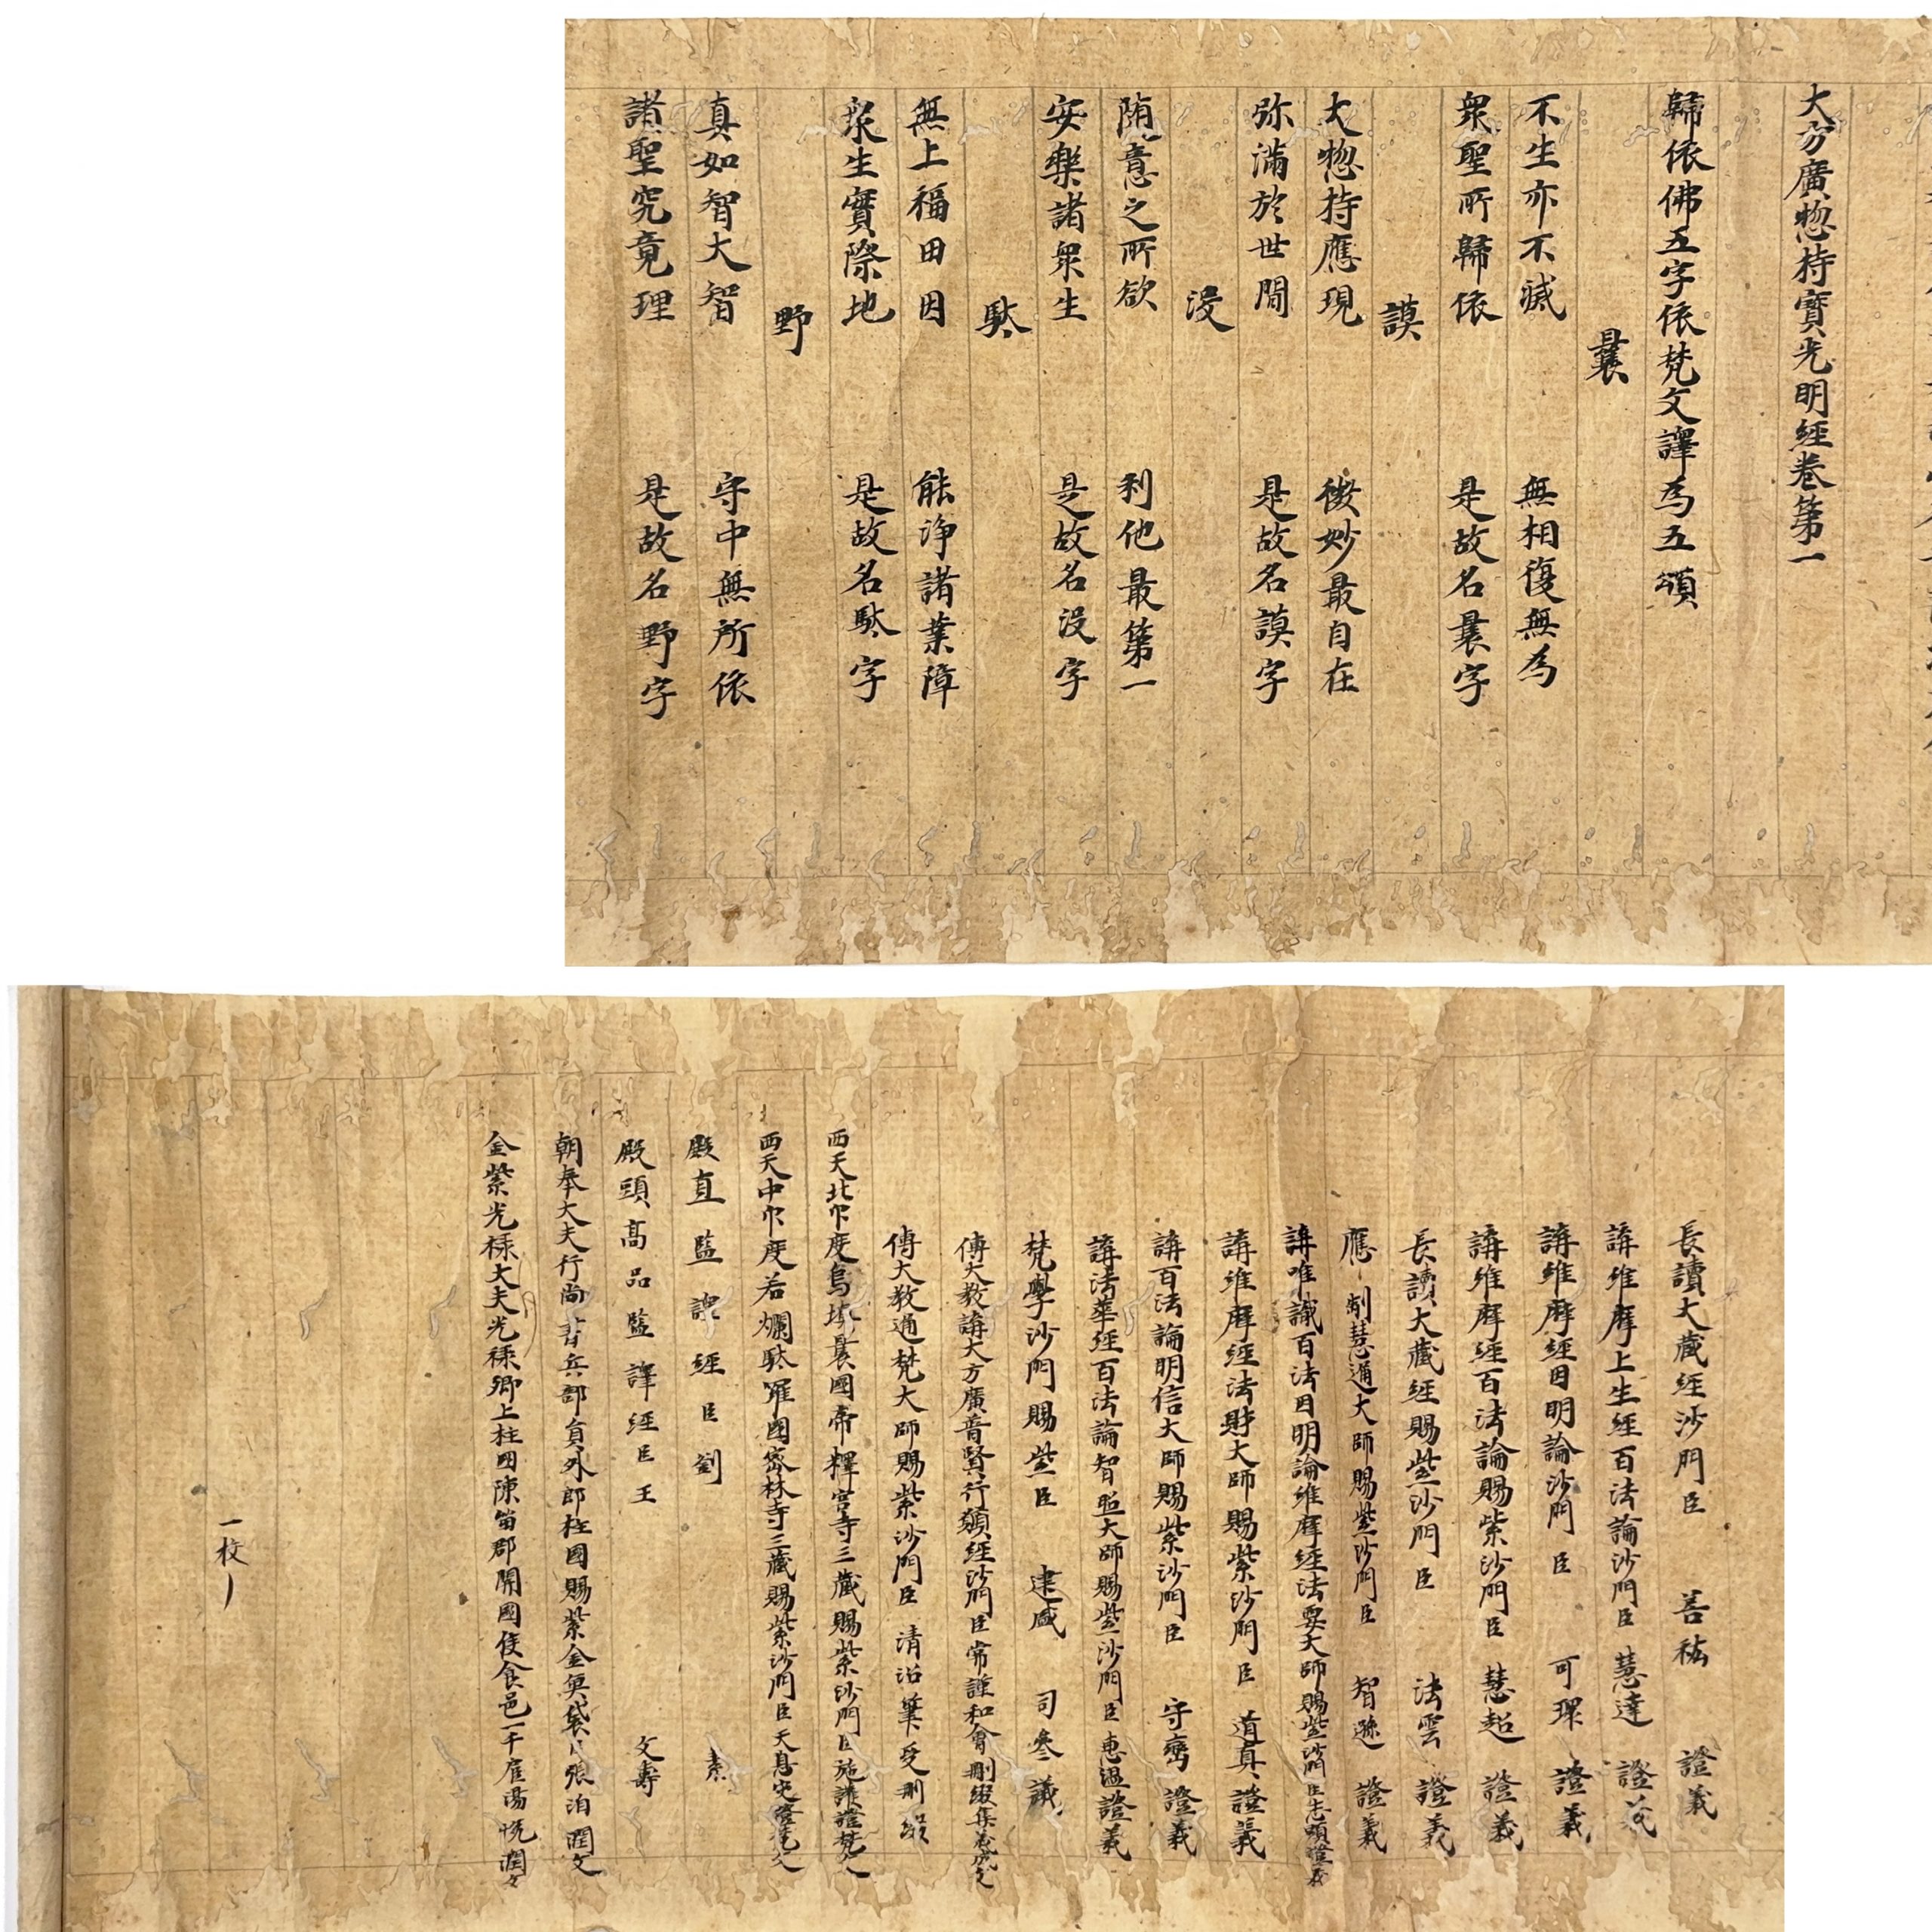 大方廣惣持寶光明經卷第一
歸依佛五字依梵文譯為五頌
曩
不生亦不滅 無相復無為
衆聖所歸依 是故名曩字
謨
大惣持應現 微妙最自在
弥滿於世間 是故名謨字
没
随意之所欲 利他最第一
安樂諸衆生 是故名没字
馱
無上福田因 能淨諸業障
衆生實際地 是故名馱字
野
真如智大智 守中無所依
諸聖究竟理 是故名野字
長讀大藏經沙門臣 善祐 證義
講維摩上生經百法論沙門臣 慧達 證義
講維摩經因明論沙門 臣 可瓌 證義
講維摩經百法論賜紫沙門臣 慧超 證義
長讀大藏經賜紫沙門 臣 法雲 證義
應制慧通大師賜紫沙門臣 智遜 證義
講唯識百法因明論維摩經法要大師賜紫沙門臣志顯證義
講維摩經法財大師賜紫沙門 臣 道真 證義
講百法論明信大師賜紫沙門臣 守巒 證義
講法華經百法論智照大師賜紫沙門臣惠溫證義
梵學沙門賜紫臣 建盛 司參議
傳大教講大方廣普賢行願經沙門臣常謹和會刪綴集義成文
傳大教通梵大師賜紫沙門臣 清沼筆受刪綴
西天北印度烏填曩國帝釋宮寺三藏賜紫沙門臣施護證梵文
西天中印度惹爛馱羅國密林寺三藏賜紫沙門臣天息災證梵文
殿直監譯經臣劉 素
殿頭高品監譯經臣王 文壽
朝奉大夫行尚書兵部員外郎柱國賜紫金魚袋臣張洎潤文
金紫光祿大夫光祿卿上柱國陳留郡開國侯食邑一千戶臣湯悅潤文
一校丿